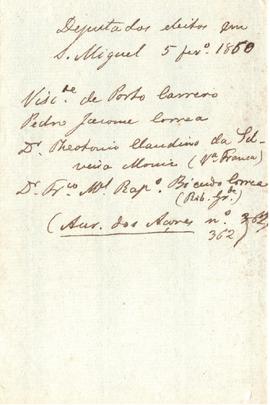 Deputados eleitos em
S. Miguel 5 fevº. 1860
Visc.de de Porto Carrero
Pedro Jacome Correa
Dr. Theotonio Claudino da Sil-
veira Moniz (Vª Franca)
Dr. Frco Mel Rapº. Bicudo Correa
(Rib. Gr.de)
(Aur. dos Açores nº.
362)